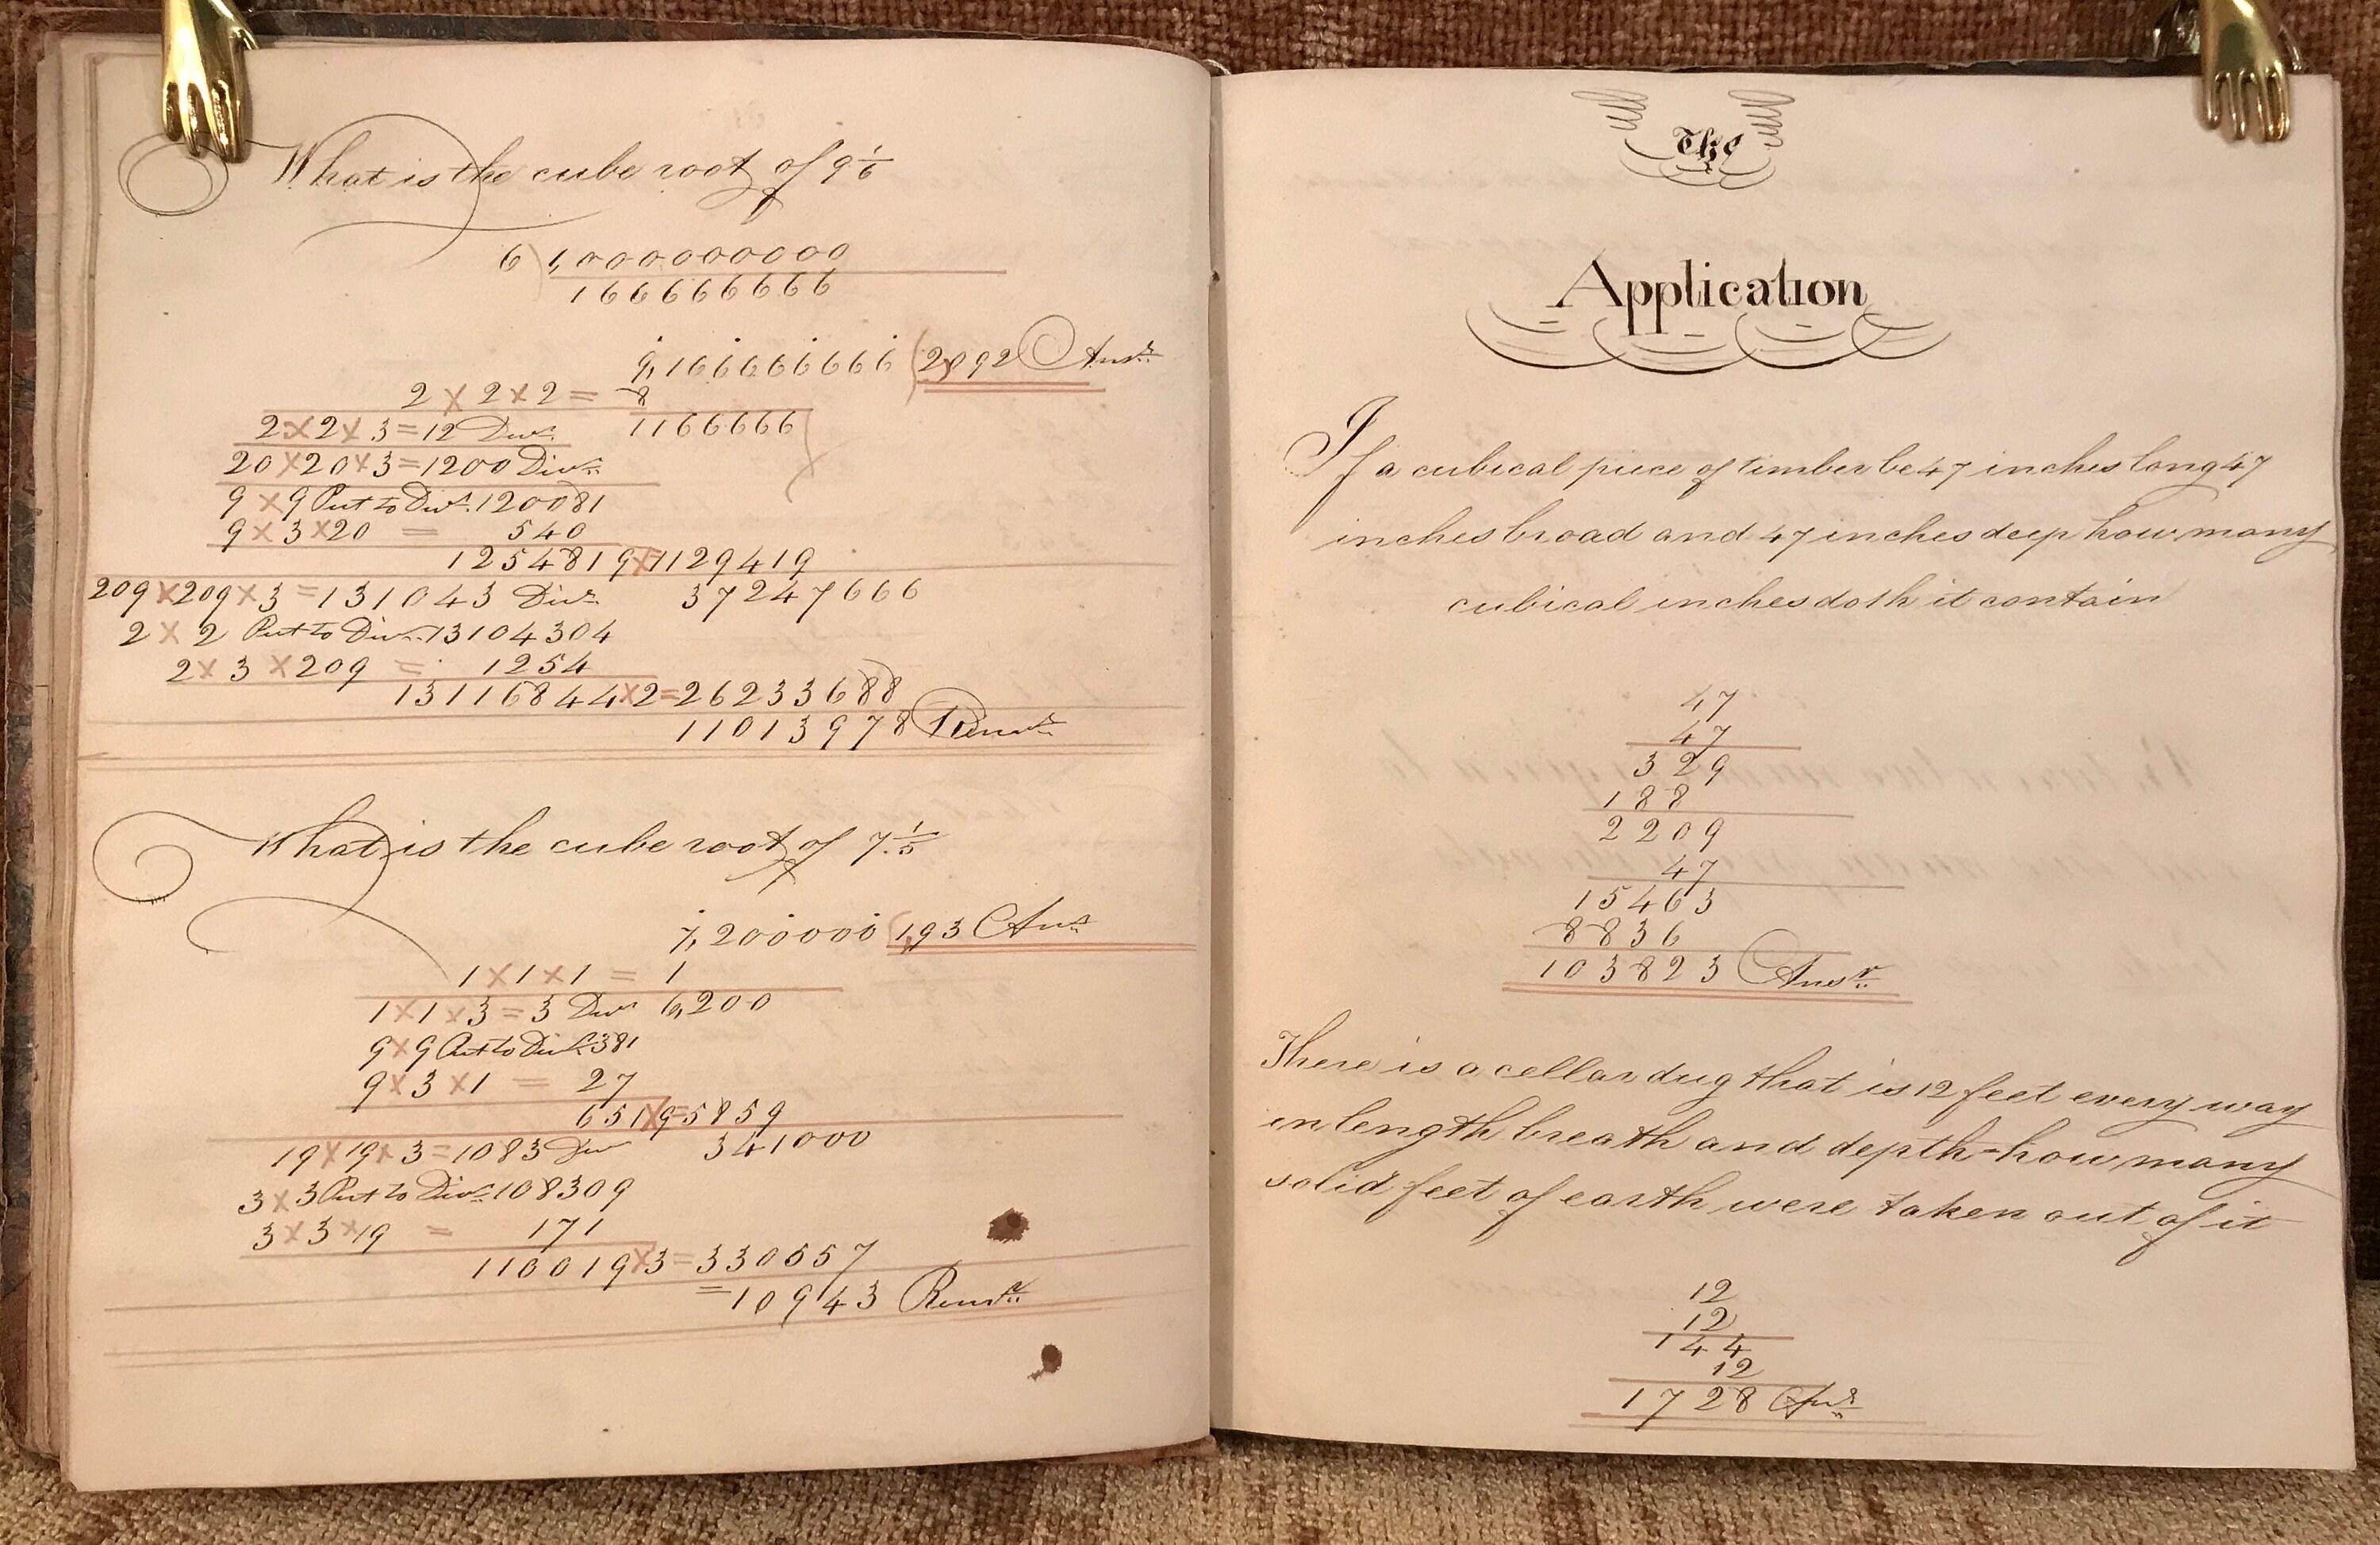 What is the cube root of 9 1/6
6) 1,000000000
166666666
9,166666666 (2,092 Ansr.
2 × 2 × 2 = 8
2 × 2 × 3 = 12 Divr. 1166666
20 × 20 × 3 = 1200 Divr.
9 × 9 Put to Divr. 120081
9 × 3 × 20 = 540
125481 9 × 1129419
209 × 209 × 3 = 131043 Divr. 37247666
2 × 2 Put to Divr. 13104304
2 × 3 × 209 = 1254
13116844 × 2 = 26233688
11013978 Remr.
What is the cube root of 7 1/5
7,200000 (1,93 Ansr.
1 × 1 × 1 = 1
1 × 1 × 3 = 3 Divr 6,200
9 × 9 Put to Divr. 381
9 × 3 × 1 = 27
651 × 9 = 5859
19 × 19 × 3 = 1083 Divr 341000
3 × 3 Put to Divr. 108309
3 × 3 × 19 = 171
110019 × 3 = 330057
= 10943 Remr.
The
Application
If a cubical piece of timber be 47 inches long 47
inches broad and 47 inches deep how many
cubical inches doth it contain
47
47
329
188
2209
47
15463
8836
103823 Ansr.
There is a cellar dug that is 12 feet every way
in length breath and depth - how many
solid feet of earth were taken out of it
12
12
144
12
1728 Ansr.